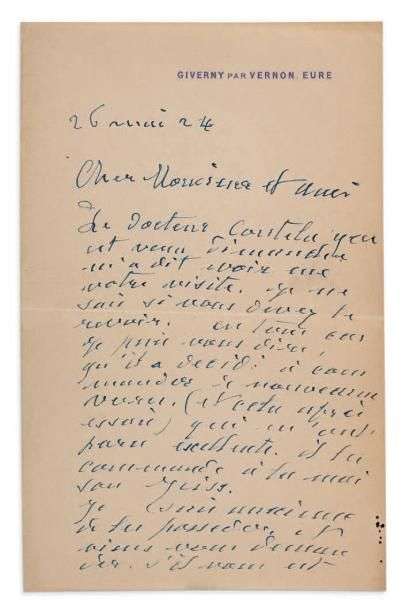 GIVERNY PAR VERNON. EURE
26 mai 24
Cher Monsieur et ami
Le docteur Coutela qui
est venu dimanche
m'a dit avoir eu
votre visite. Je ne
sais si vous devez le
revoir. en tout cas
je puis vous dire
qu'il a décidé à com
mander de nouveaux
verres. (et cela après
essais) qui m'ont
paru excellents. il les
commande à la mai
son
Je suis anxieux
de les posséder, et
viens vous deman
der. s'il vous est